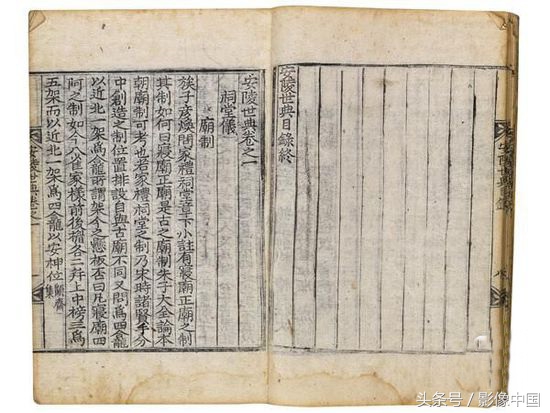 安陵世典目錄終
安陵世典卷之一
祠堂儀
廟制
族子彦煥問家禮祠堂章下小註有寢廟正廟之制
其制如何曰寢廟正廟是古之廟制朱子大全論本
朝廟制可考也若家禮祠堂之制乃宋時諸賢千分
中創造之制位置排設自與古廟不同又問爲四龕
以近北一架爲龕所謂架今之懸板否曰凡寢廟四
阿之制如今人作家樣前後楹各二幷上中樑三爲
五架而以近北一架爲四龕以安神位 齋集
安陵世典卷之一
头条号／影像中国